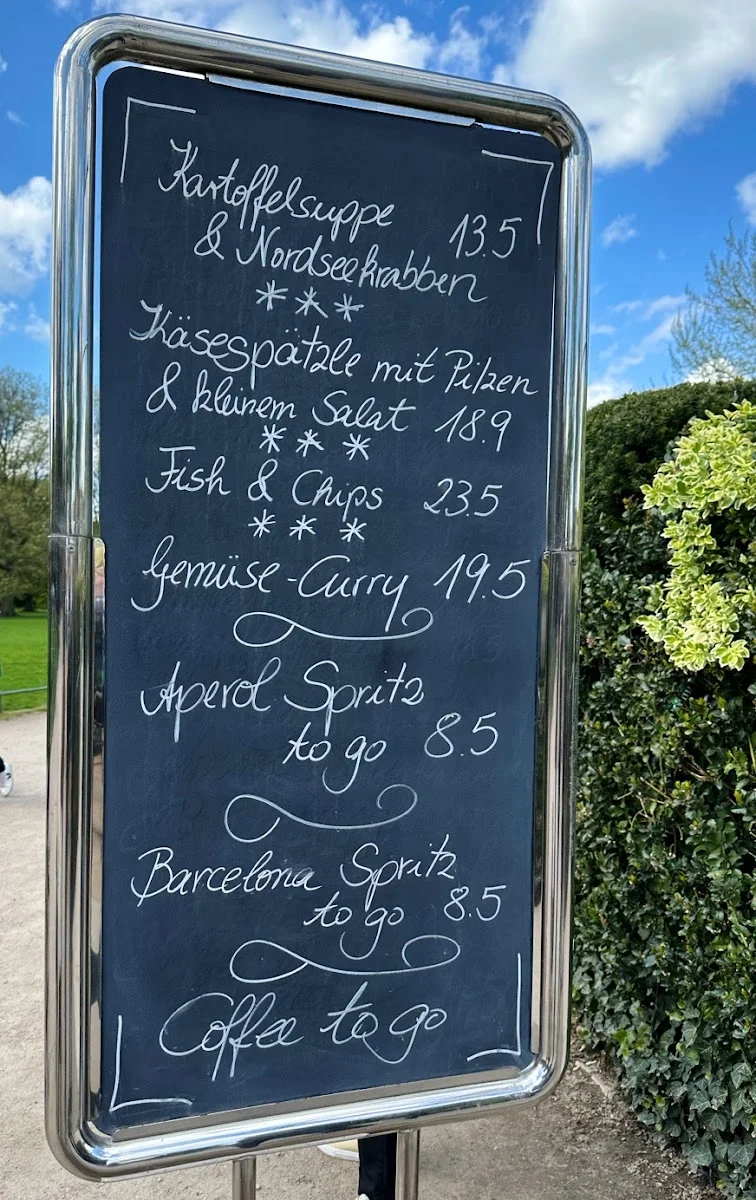 Kartoffelsuppe
& Nordseekrabben 13.5
***
Käsespätzle mit Pilzen
& kleinem Salat 18.9
***
Fish & Chips 23.5
***
Gemüse-Curry 19.5
Aperol Spritz
to go 8.5
Barcelona Spritz
to go 8.5
Coffee to go